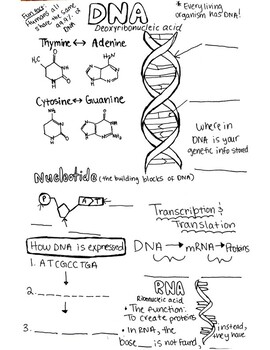 Fun fact:
Humans all
share the same
% of
DNA
DNA
Deoxyribonucleic acid
* Every living
organism has DNA!
Thymine ↔ Adenine
Cytosine ↔ Guanine
Where in
DNA is your
genetic info stored
Nucleotide (the building blocks of DNA)
P
A T
Transcription &
Translation
DNA → mRNA → Proteins
How DNA is expressed
1. ATCGCCTGA
2.
3.
RNA
Ribonucleic acid
• The function:
To create proteins
• In RNA, the
base __ is not found,
instead,
they have